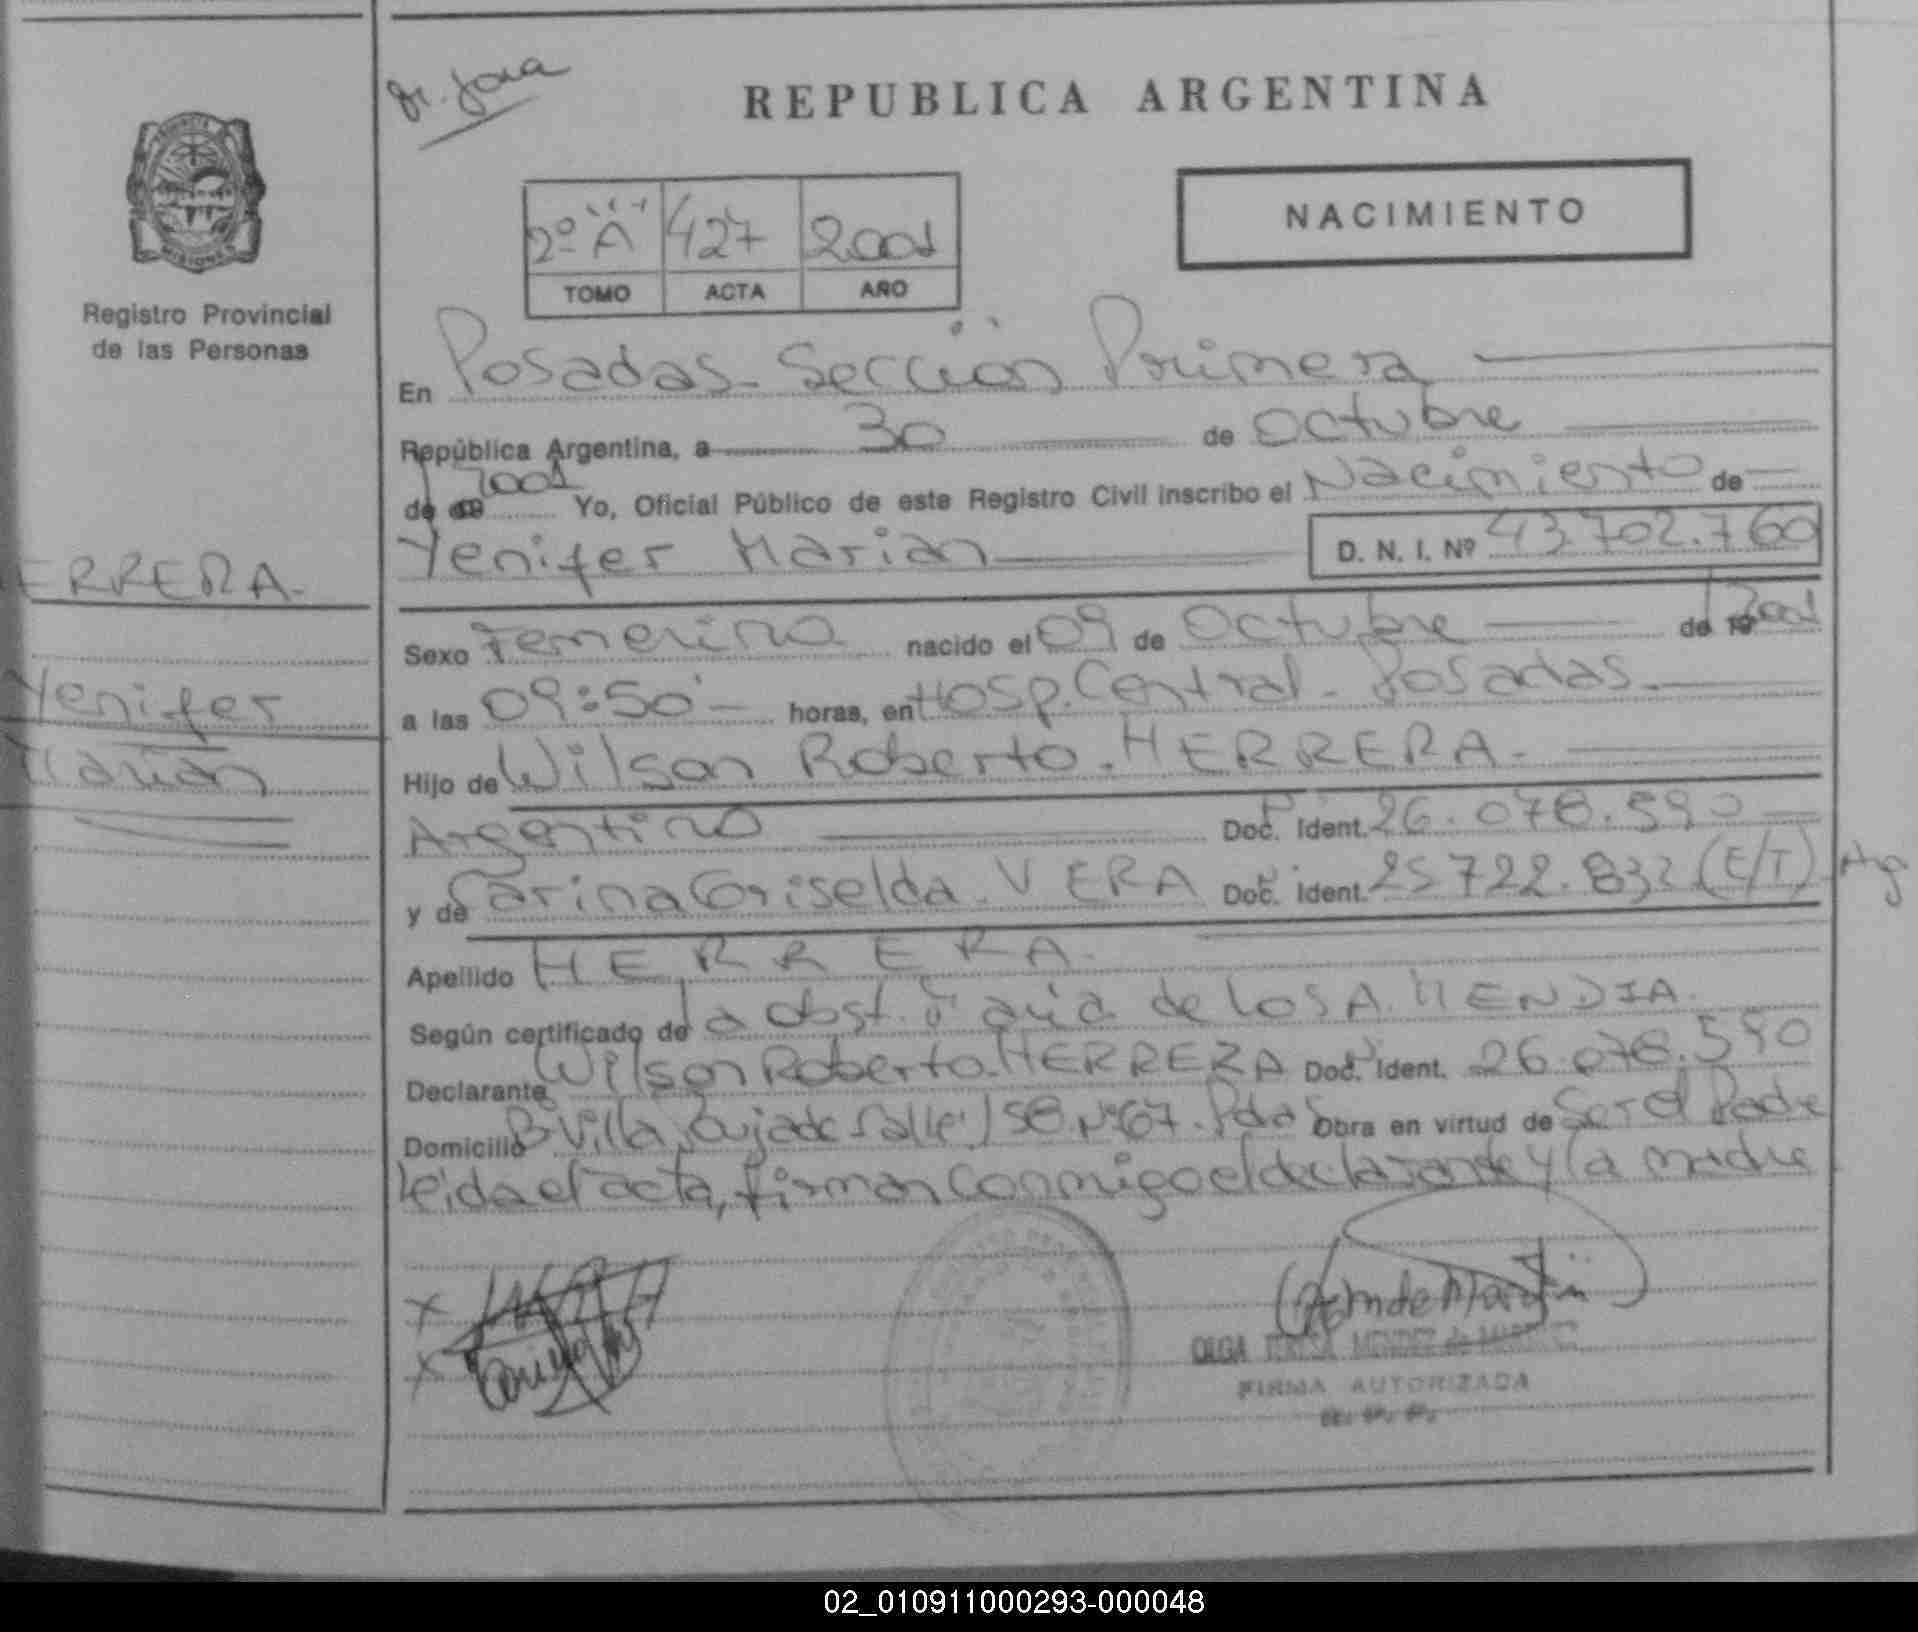 Dr. Jona
REPUBLICA ARGENTINA
PROVINCIA
MISIONES
2º "A" 427 2001
TOMO ACTA AÑO
NACIMIENTO
Registro Provincial
de las Personas
En Posadas - Sección Primera
República Argentina, a 30 de Octubre
de 19 2001 Yo, Oficial Público de este Registro Civil inscribo el Nacimiento de
Yenifer Marian D. N. I. Nº 43.702.760
ERRERA.
Yenifer
Marian
Sexo Femenino nacido el 09 de Octubre de 19 2001
a las 09:50 horas, en Hosp. Central - Posadas
Hijo de Wilson Roberto. HERRERA.
Argentino Doc. Ident. 26.078.590
y de Carina Griselda. VERA Doc. Ident. 25.722.832 (E/T). Arg
Apellido HERRERA.
Según certificado de la obst. de los A. MENDIA.
Declarante Wilson Roberto. HERRERA Doc. Ident. 26.078.590
Domicilio Bº Villa Calle 158 Nº 67. Pdas Obra en virtud de Ser el Padre
leida el acta, firman conmigo el declarante y la madre
OLGA TERESA MENDEZ de
FIRMA AUTORIZADA
R. P. P.
02_010911000293-000048